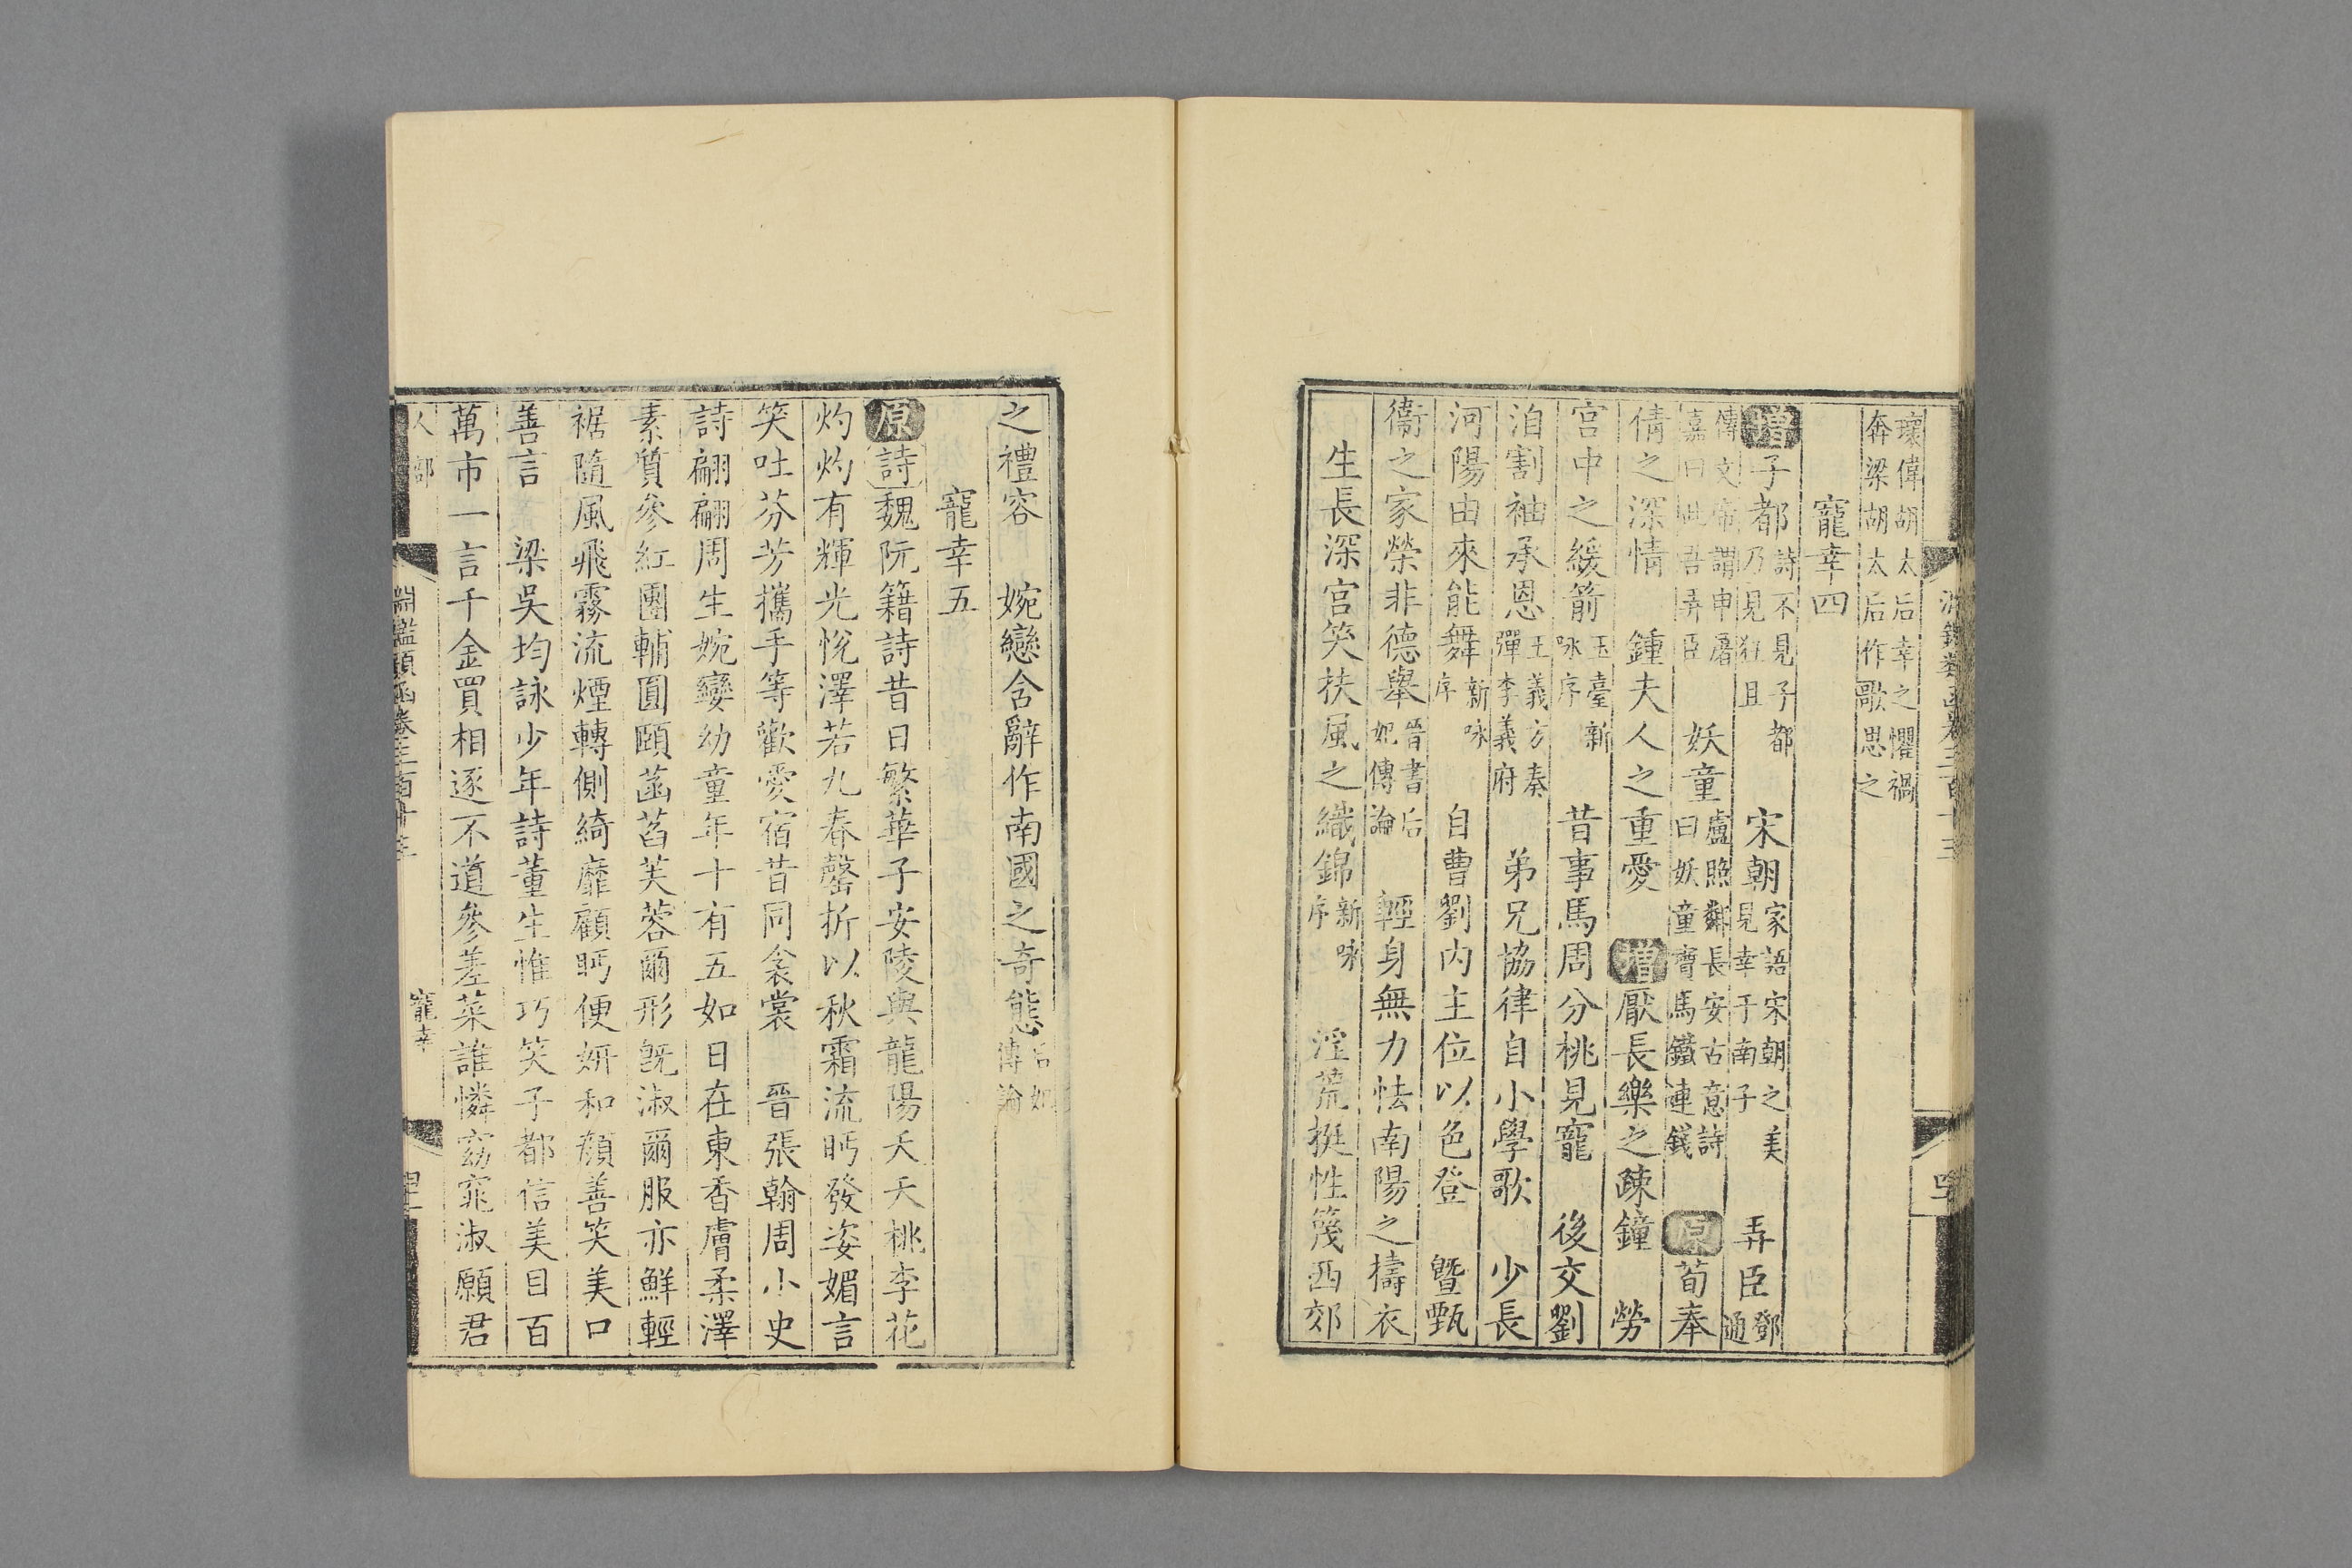 瓌偉胡太后幸之懼禍
奔梁胡太后作歌思之
寵幸四
增子都詩不見子都乃見狂且 宋朝家語宋朝之美見幸于南子 弄臣鄧通
傳文帝謂申屠嘉曰此吾弄臣 妖童盧照鄰長安古意詩曰妖童寶馬鐵連錢 原荀奉
倩之深情 鍾夫人之重愛 增厭長樂之疎鐘 勞
宮中之緩箭玉臺新咏序 昔事馬周分桃見寵 後交劉
洎割袖承恩王義方奏彈李義府 弟兄協律自小學歌 少長
河陽由來能舞新咏序 自曹劉內主位以色登 曁甄
衞之家榮非德舉晉書后妃傳論 輕身無力怯南陽之擣衣
生長深宮笑扶風之織錦新咏序 淫荒挺性篾西郊
之禮容 婉孌含辭作南國之奇態后妃傳論
寵幸五
原詩魏阮籍詩昔日繁華子安陵與龍陽夭夭桃李花
灼灼有輝光悅澤若九春罄折以秋霜流眄發姿媚言
笑吐芬芳攜手等歡愛宿昔同衾裳 晉張翰周小史
詩翩翩周生婉孌幼童年十有五如日在東香膚柔澤
素質參紅團輔圓頤菡萏芙蓉爾形旣淑爾服亦鮮輕
裾隨風飛霧流煙轉側綺靡顧眄便妍和顏善笑美口
善言 梁吳均詠少年詩董生惟巧笑子都信美目百
萬市一言千金買相逐不道參差菜誰憐窈窕淑願君
人部 淵鑑類函卷三百十三 寵幸